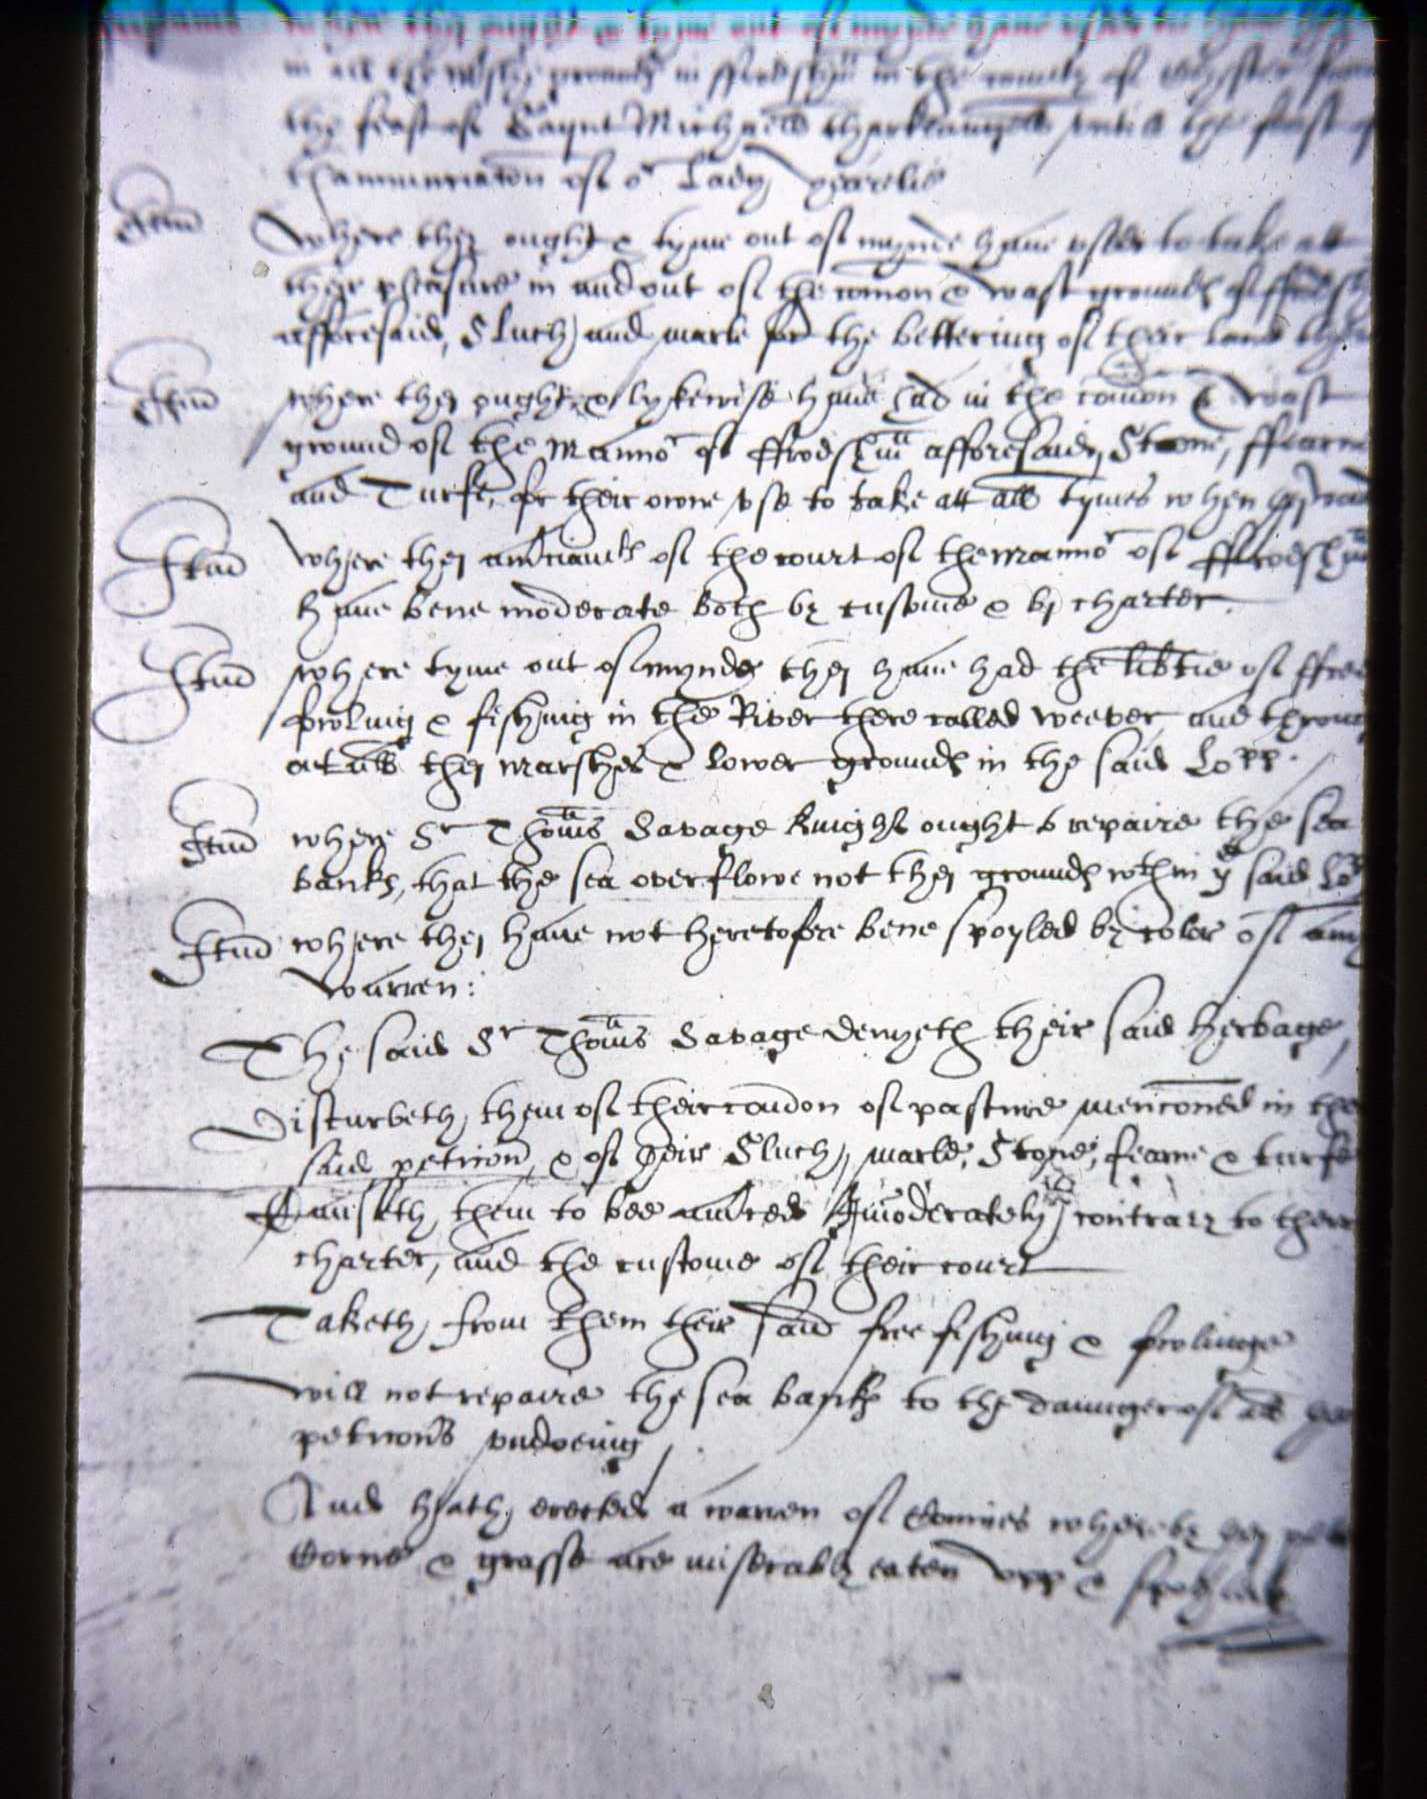 ought & tyme out of mynde have used to have
in all the grounds in ffrodshm in the county of Chester from
the feast of Saynt Michaell tharkeangell untill the feast of
thannunciaton of or Lady yearelie
Itm Where they ought & tyme out of mynde have used to take att
their pleasure in and out of the comon & wast grounds of ffrodshm
afforesaid, Sluch and marle for the bettering of their land
Itm where they ought & lykewise have had in the comon & wast
ground of the Mannor of ffrodshm afforesaid, Stone, ffearne
and Turfe, for their owne use to take att all tymes when
Itm Where they amerciamts of the court of the mannor of ffrodshm
have bene moderate both by custome & by charter.
Itm where tyme out of mynde they have had the libtie of ffree
fowling & fishing in the River there called weever and throug
out all they marshes & lower grounds in the said Lopp.
Itm where Sr Thoms Savage Knight ought to repaire the sea
banks, that the sea overflowe not they grounds wthin ye said Lopp
Itm where they have not heretofore bene spoyled by of any
warren:
The said Sr Thoms Savage denyeth their said herbage,
Disturbeth them of their comon of pasture mencioned in the
said peticon, & of their Sluch, marle, Stone, fearne & turfe
Causeth them to bee amrced Immoderately contrary to their
charter, and the custome of their court
Taketh from them their said free fishing & fowlinge
will not repaire the sea banks to the daunger of all
peticonrs undoeing.
And hath erected a warren of Connies whereby
Corne & grasse are miserably eaten upp & spoyled